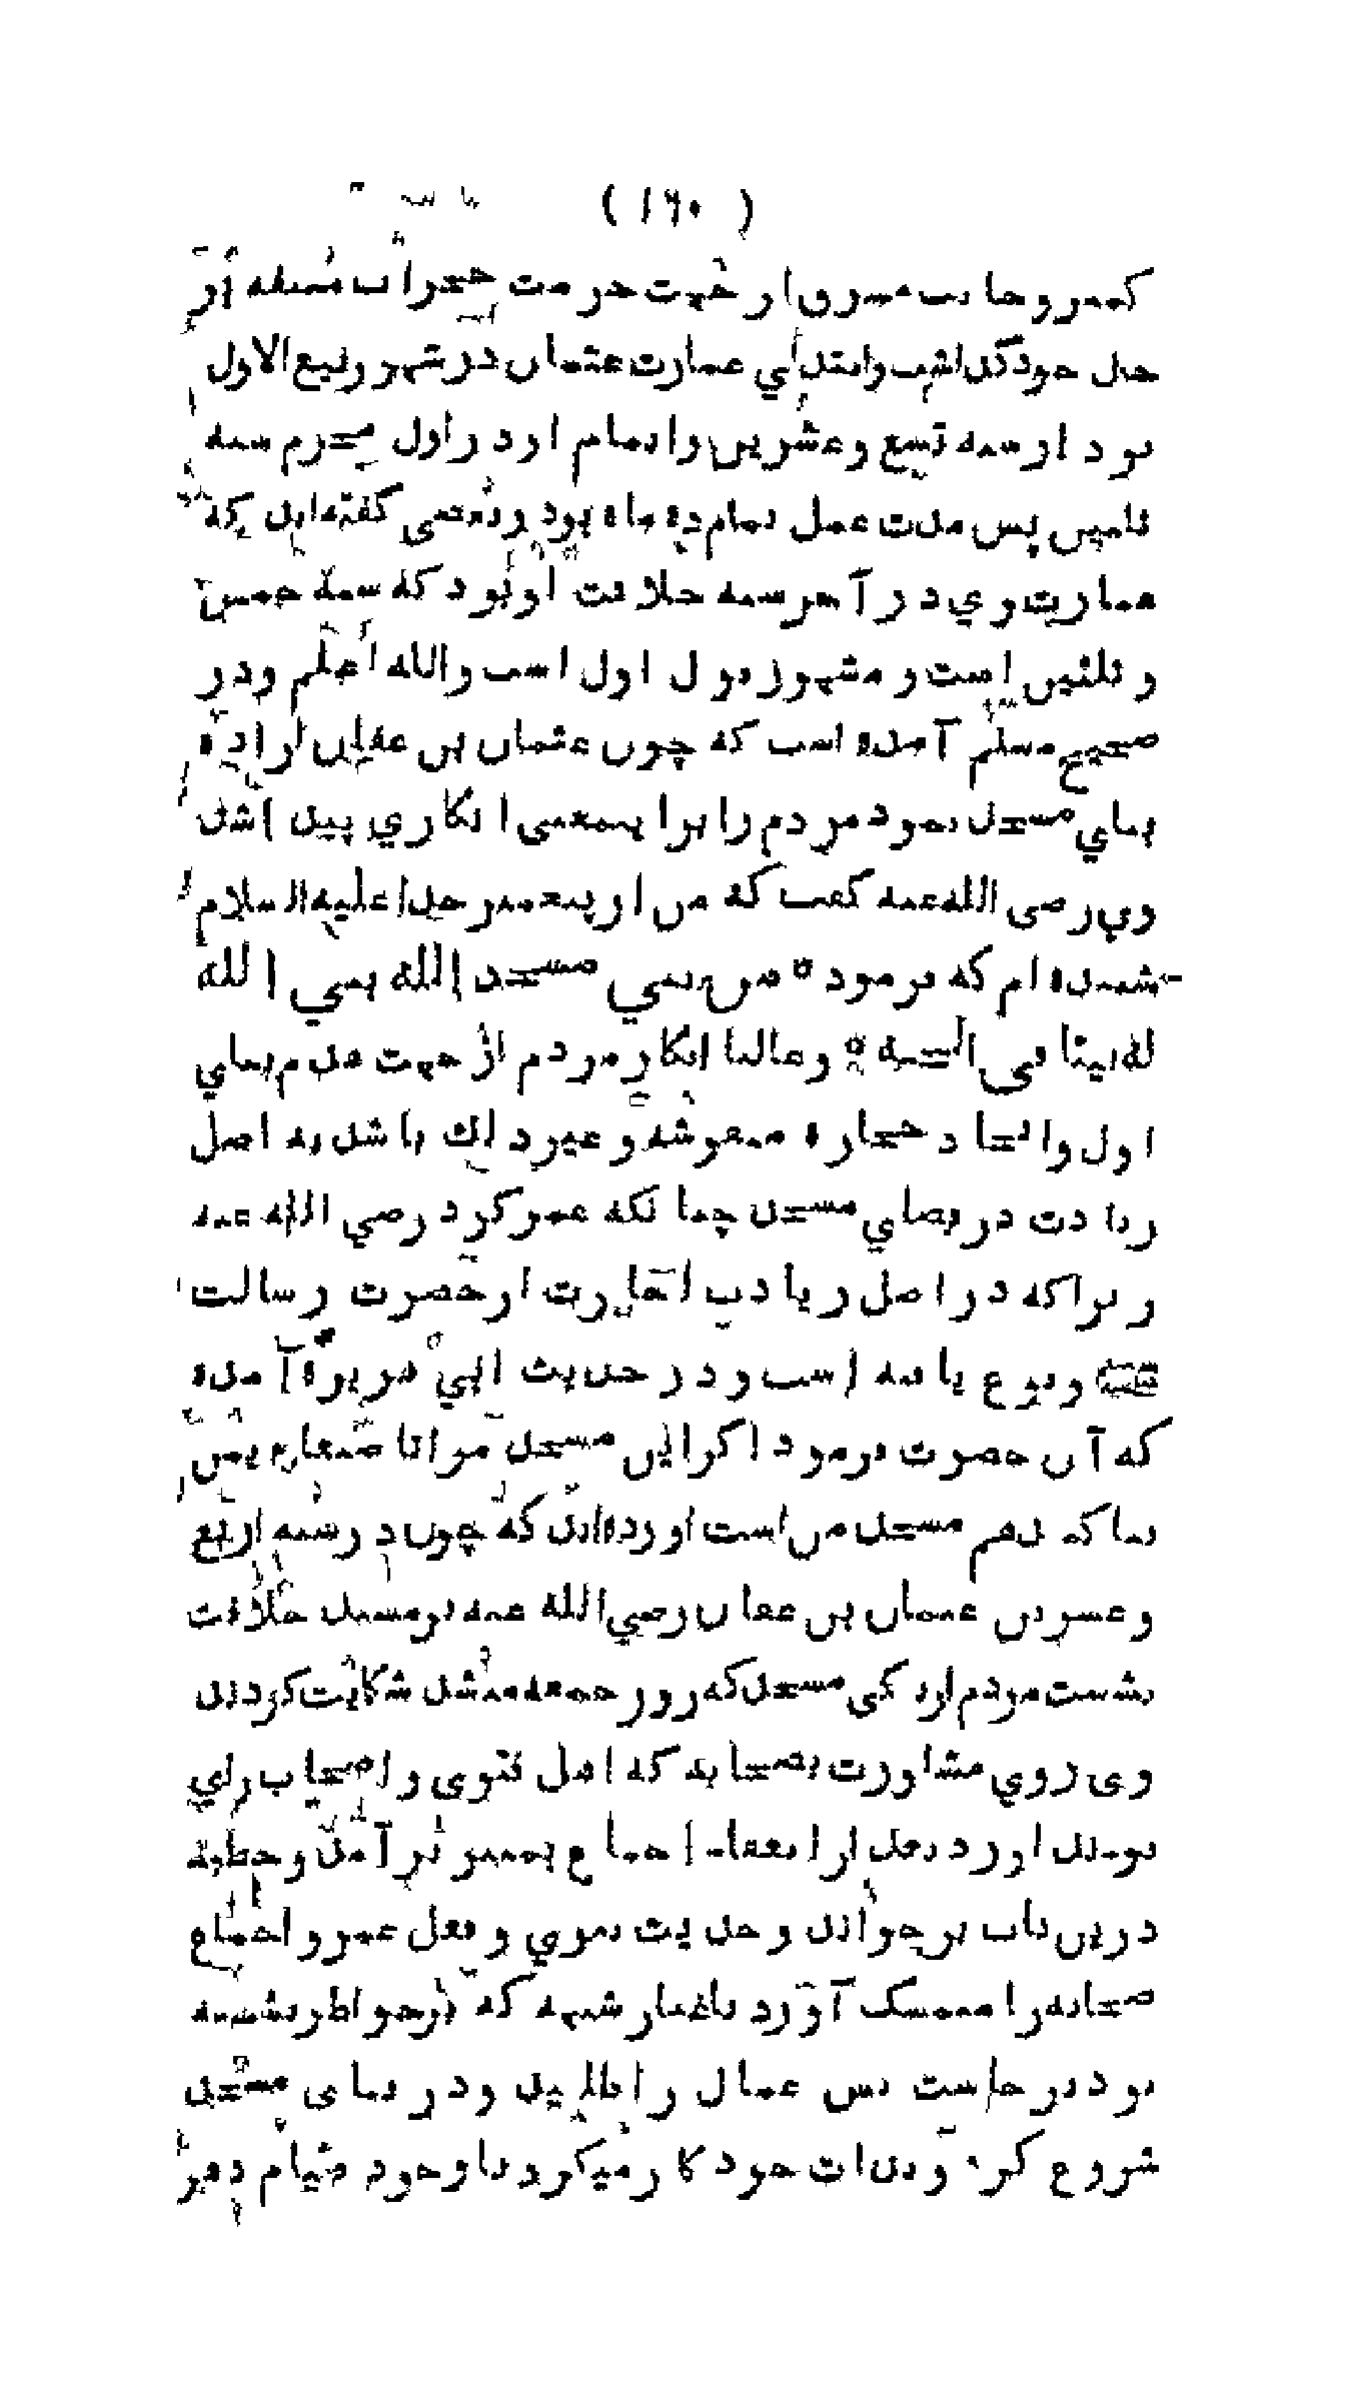 ( ۱۶۰ )
كمبر و جانب مشرق از جهت حرمت حجرات منيفه بر
حال خود گذاشت و ابتداي عمارت عثمان در شهر ربيع الاول
بود از سنه تسع و عشرين و اتمام او در اول محرم سنه
ثلثين پس مدت عمل تمام ده ماه بود و بعضى گفته اند كه
عمارت وي در آخر سنه خلافت او بود كه سنه خمس
و ثلثين است و مشهور قول اول است والله اعلم و در
صحيح مسلم آمده است كه چون عثمان بن عفان اراده
بناي مسجد نمود مردم را برا ينمعنى انكاري پيدا شد
وي رضى الله عنه گفت كه من از پيغمبر خدا عليه السلام
شنيده ام كه فرمود * من بنى مسجد الله بنى الله
له بيتا فى الجنة * و غالبا انكار مردم از جهت هدم بناي
اول و اتخاذ حجاره منقوشه و غير ذلك باشد نه اصل
زيادت در فضاي مسجد چنانكه عمر كرد رضي الله عنه
زيرا كه در اصل زيادت اجازت از حضرت رسالت
ﷺ وقوع يافته است و در حديث ابي هريره آمده
كه آن حضرت فرمود اگر اين مسجد مرا تا صنعاء يمن
بنا كنند هم مسجد من است آورده اند كه چون در سنه اربع
و عشرين عثمان بن عفان رضي الله عنه بر مسند خلافت
نشست مردم از تنگى مسجد كه روز جمعه ميشد شكايت كردند
وى روي مشاورت بصحابه كه اهل فتوى و اصحاب راي
بودند آورد بعد از انعقاد اجماع بمنبر بر آمد و خطبه
درين باب بر خواند و حديث نبوي و فعل عمر و اجماع
صحابه را متمسك آورد تا غبار شبهه كه بر خواطر نشسته
بود بر خاست پس عمال را طلبيد و در بناى مسجد
شروع كرد و بذات خود كار ميكرد با وجود صيام دهر